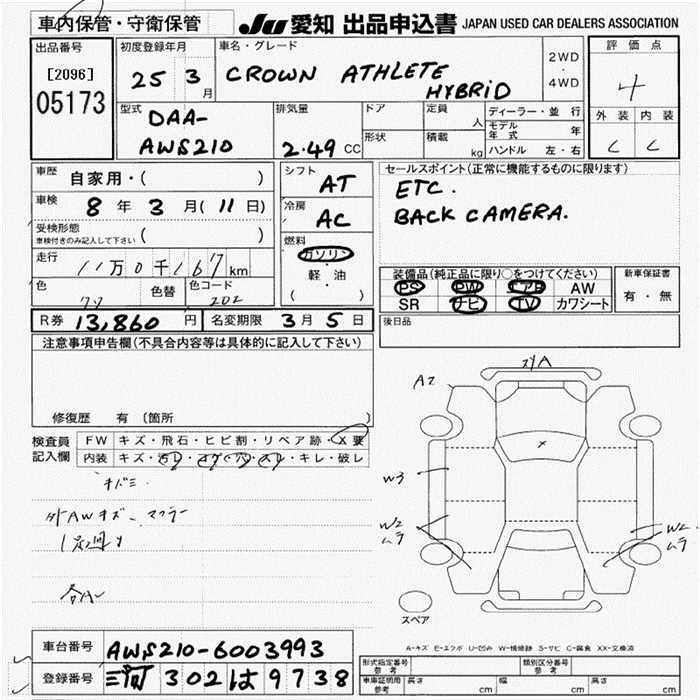 車内保管・守衛保管
JU 愛知 出品申込書 JAPAN USED CAR DEALERS ASSOCIATION
出品番号
[2096]
05173
初度登録年月
25 3 月
車名・グレード
CROWN ATHLETE
HYBRID
2WD
・
4WD
評価点
4
外装 内装
C C
型式
DAA-
AWS210
排気量
2.49 CC
ドア
形状
定員 人
積載 kg
ディーラー・並行
モデル年式 年
ハンドル 左・右
車歴 自家用・( )
車検 8 年 3 月 ( 11 日)
受検形態
車検付きのみ記入して下さい ( )
走行 11万0千167 km
色
色替
色コード
202
シフト
AT
冷房
AC
燃料
ガソリン
・
軽・油
( )
セールスポイント(正常に機能するものに限ります)
ETC.
BACK CAMERA.
装備品(純正品に限り○をつけてください)
PS PW エアB AW
SR ナビ TV カワシート
新車保証書
有・無
R券 13,860 円
名変期限 3 月 5 日
後日品
注意事項申告欄(不具合内容等は具体的に記入して下さい)
修復歴 有 〔箇所 〕
検査員
記入欄
FW キズ・飛石・ヒビ割・リペア跡・X要
内装 キズ・汚レ・コゲ・穴・スレ・キレ・破レ
キバミ
外AWキズ
各A
A2
W3
W2
ムラ
W2
ムラ
スペア
A-キズ E-エクボ U-凹み W-補修跡 S-サビ C-腐食 XX-交換済
車台番号 AWS210-6003993
登録番号 三河 302 は 9738
形式指定番号
参考
類別区分番号
参考
車庫証明用
参考
長さ cm
幅 cm
高さ cm